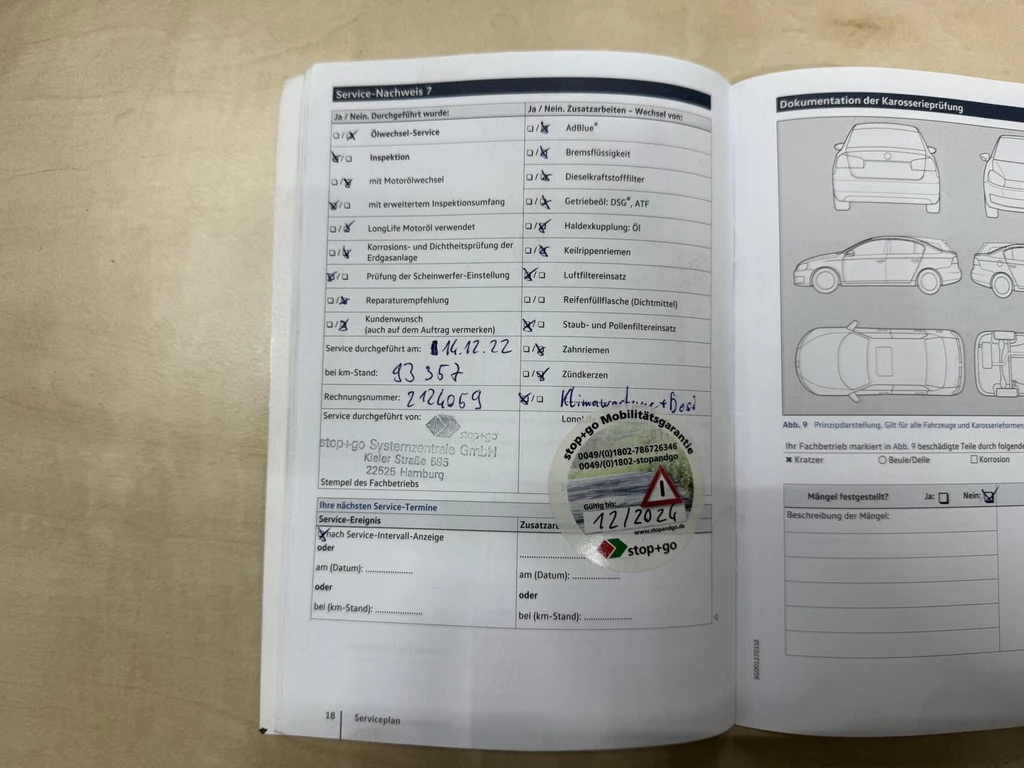 Service-Nachweis 7
Ja / Nein. Durchgeführt wurde:
Ölwechsel-Service
Inspektion
mit Motorölwechsel
mit erweitertem Inspektionsumfang
LongLife Motoröl verwendet
Korrosions- und Dichtheitsprüfung der
Erdgasanlage
Prüfung der Scheinwerfer-Einstellung
Reparaturempfehlung
Kundenwunsch
(auch auf dem Auftrag vermerken)
Service durchgeführt am: 14.12.22
bei km-Stand: 93 357
Rechnungsnummer: 2124069
Service durchgeführt von:
stop+go
stop+go Systemzentrale GmbH
Kieler Straße 595
22525 Hamburg
Stempel des Fachbetriebs
Ja / Nein. Zusatzarbeiten – Wechsel von:
AdBlue®
Bremsflüssigkeit
Dieselkraftstofffilter
Getriebeöl: DSG®, ATF
Haldexkupplung: Öl
Keilrippenriemen
Luftfiltereinsatz
Reifenfüllflasche (Dichtmittel)
Staub- und Pollenfiltereinsatz
Zahnriemen
Zündkerzen
Klimawartung + Desi
stop+go Mobilitätsgarantie
0049/(0)1802-786726346
0049/(0)1802-stopandgo
Gültig bis:
12/2024
www.stopandgo.de
stop+go
Ihre nächsten Service-Termine
Service-Ereignis
nach Service-Intervall-Anzeige
oder
am (Datum): ................
oder
bei (km-Stand): ................
am (Datum): ................
oder
bei (km-Stand): ................
18
Serviceplan
Dokumentation der Karosserieprüfung
Abb. 9 Prinzipdarstellung. Gilt für alle Fahrzeuge und Karosserieformen
Ihr Fachbetrieb markiert in Abb. 9 beschädigte Teile durch folgende
Kratzer Beule/Delle Korrosion
Mängel festgestellt? Ja: Nein:
Beschreibung der Mängel: